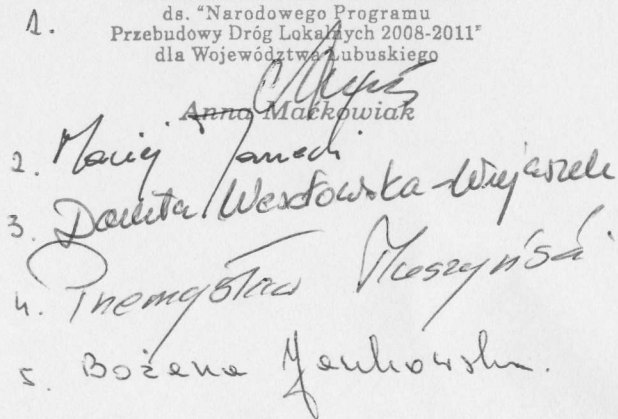 1.
ds. "Narodowego Programu
Przebudowy Dróg Lokalnych 2008-2011"
dla Województwa Lubuskiego
Anna Maćkowiak
2. Maciej
3. Danuta Wesołowska-Wujaszek
4. Przemysław Muszyński
5. Bożena Jankowska.